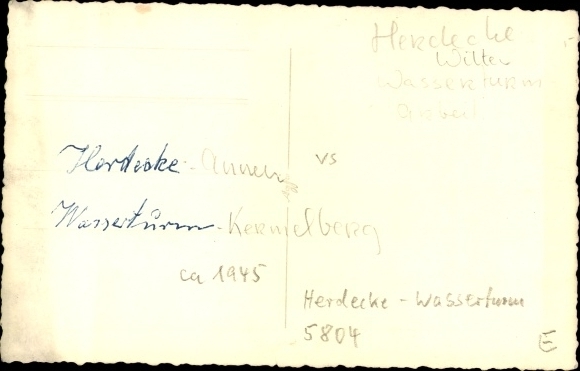 Herdecke
Witten
Wasserturm
Arbeit
Herdecke - Annen
vs
Wasserturm - Kermelberg
ca 1945
Herdecke - Wasserturm
5804
E